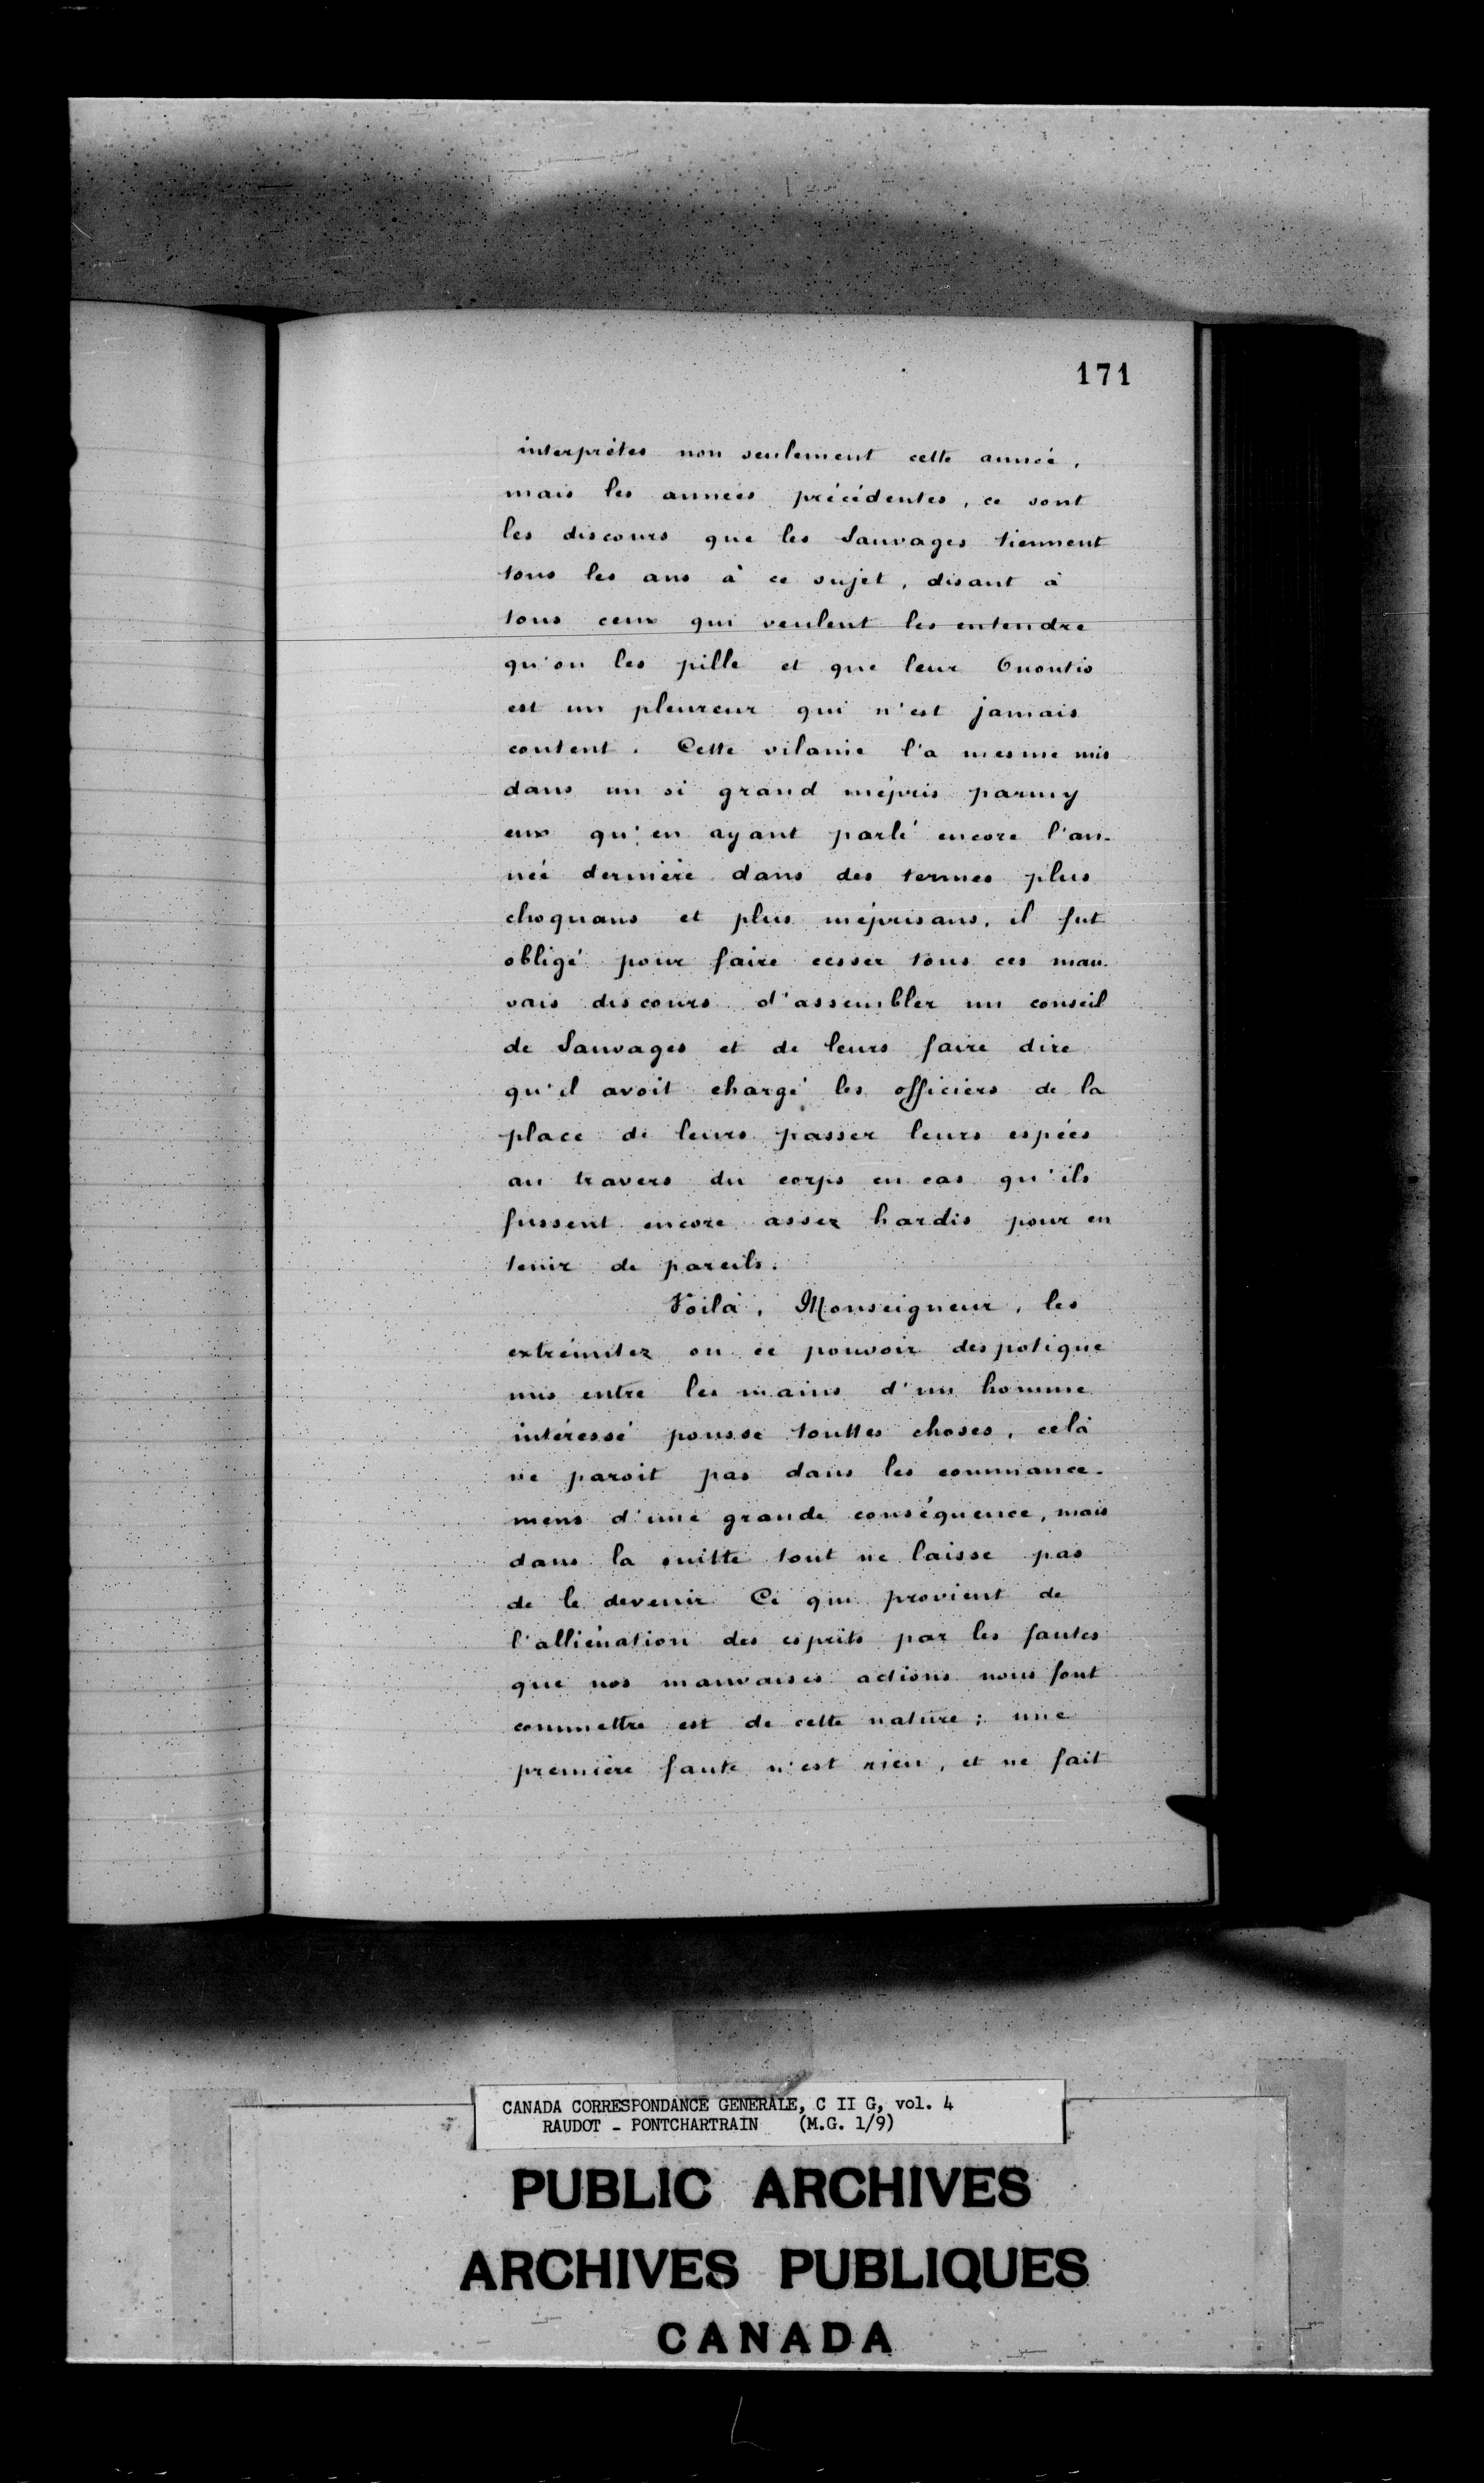 171
interprètes non seulement cette année,
mais les années précédentes, ce sont
les discours que les Sauvages tiennent
tous les ans à ce sujet, disant à
tous ceux qui veulent les entendre
qu'on les pille et que leur Onontio
est un pleureur qui n'est jamais
content. Cette vilanie l'a mesme mis
dans un si grand mépris parmy
eux qu'en ayant parlé encore l'an-
née dernière dans des termes plus
choquans et plus méprisans, il fut
obligé pour faire cesser tous ces mau-
vais discours d'assembler un conseil
de Sauvages et de leurs faire dire
qu'il avoit chargé les officiers de la
place de leurs passer leurs espées
au travers du corps en cas qu'ils
fussent encore assez hardis pour en
tenir de pareils.
Voilà, Monseigneur, les
extrémitez ou ce pouvoir despotique
mis entre les mains d'un homme
intéressé pousse touttes choses, celà
ne paroit pas dans les commance-
mens d'une grande conséquence, mais
dans la suitte tout ne laisse pas
de le devenir. Ce qui provient de
l'alliénation des esprits par les fautes
que nos mauvaises actions nous font
commettre est de cette nature; une
première faute n'est rien, et ne fait
CANADA CORRESPONDANCE GENERALE, C II G, vol. 4
RAUDOT - PONTCHARTRAIN (M.G. 1/9)
PUBLIC ARCHIVES
ARCHIVES PUBLIQUES
CANADA